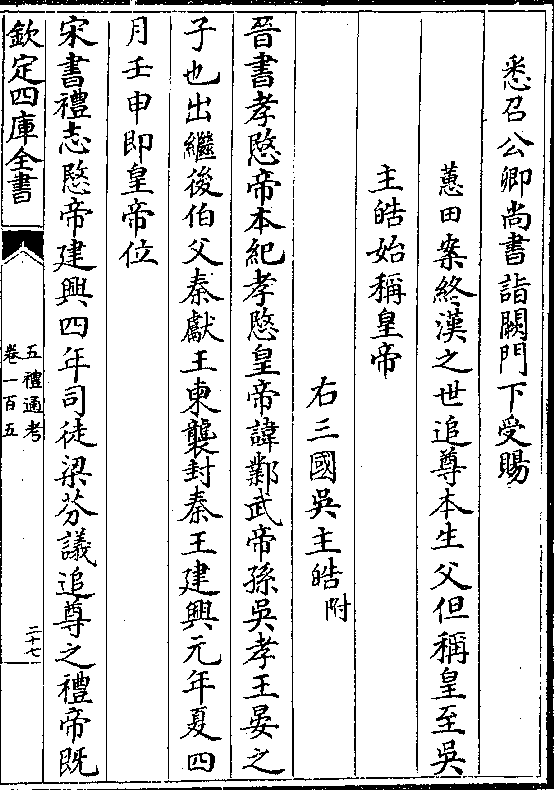 悉召公卿尚書詣闕門下受賜
蕙田案終漢之世追尊本生父但稱皇至吳
主皓始稱皇帝
右三國吳主皓附
晉書孝愍帝本紀孝愍皇帝諱鄴武帝孫吳孝王晏之
子也出繼後伯父秦獻王柬襲封秦王建興元年夏四
月壬申即皇帝位
宋書禮志愍帝建興四年司徒梁芬議追尊之禮帝既
欽定四庫全書
五禮通考
卷一百五
二十七